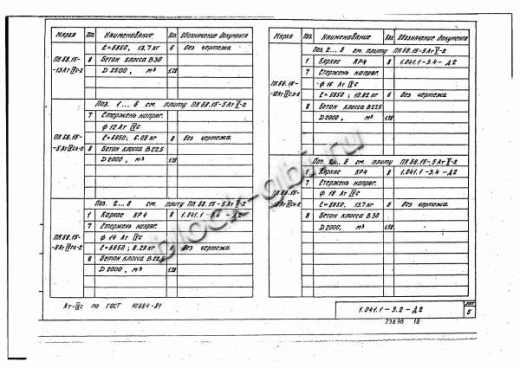 Марка Поз. Наименование Кол. Обозначение документа
ПК 68.15- ℓ=6850, 13,7 кг 6 без чертежа
8 Бетон класса В30
D 2500, м³ 1.28
Поз. 1...6 см. плиту ПК 68.15-5АтV-2
7 Стержень напряг.
ф 12 Ат IVс
ПК 68.15- ℓ=6850; 6.08 кг 8 без чертежа
8 Бетон класса В22,5
D 2000, м³ 1.28
Поз. 2...6 см. плиту ПК 68.15-5АтV-2
1 Каркас КР4 8 1.041.1-3.4-Д2
7 Стержень напряг.
ПК 68.15- ф 14 Ат IVс
ℓ=6850; 8.28 кг 6 без чертежа
8 Бетон класса В22,5
D 2000, м³ 1.28
Марка Поз. Наименование Кол. Обозначение документа
Поз. 2...6 см. плиту ПК 68.15-5АтV-2
1 Каркас КР4 8 1.041.1-3.4-Д2
ПК 68.15- 7 Стержень напряг.
ф 16 Ат IVс
ℓ=6850; 10.82 кг 6 без чертежа
8 Бетон класса В22,5
D 2000, м³ 1.28
Поз. 2...6 см. плиту ПК 68.15-5АтV-2
1 Каркас КР4 8 1.041.1-3.4-Д2
7 Стержень напряг.
ПК 68.15- ф 18 Ат IVс
ℓ=6850, 13.7 кг 8 без чертежа
8 Бетон класса В30
D 2000, м³ 1.28
Ат-IVс по ГОСТ 10884-81
1.041.1-3.2-Д2
5
23898 18
block-gbi.ru